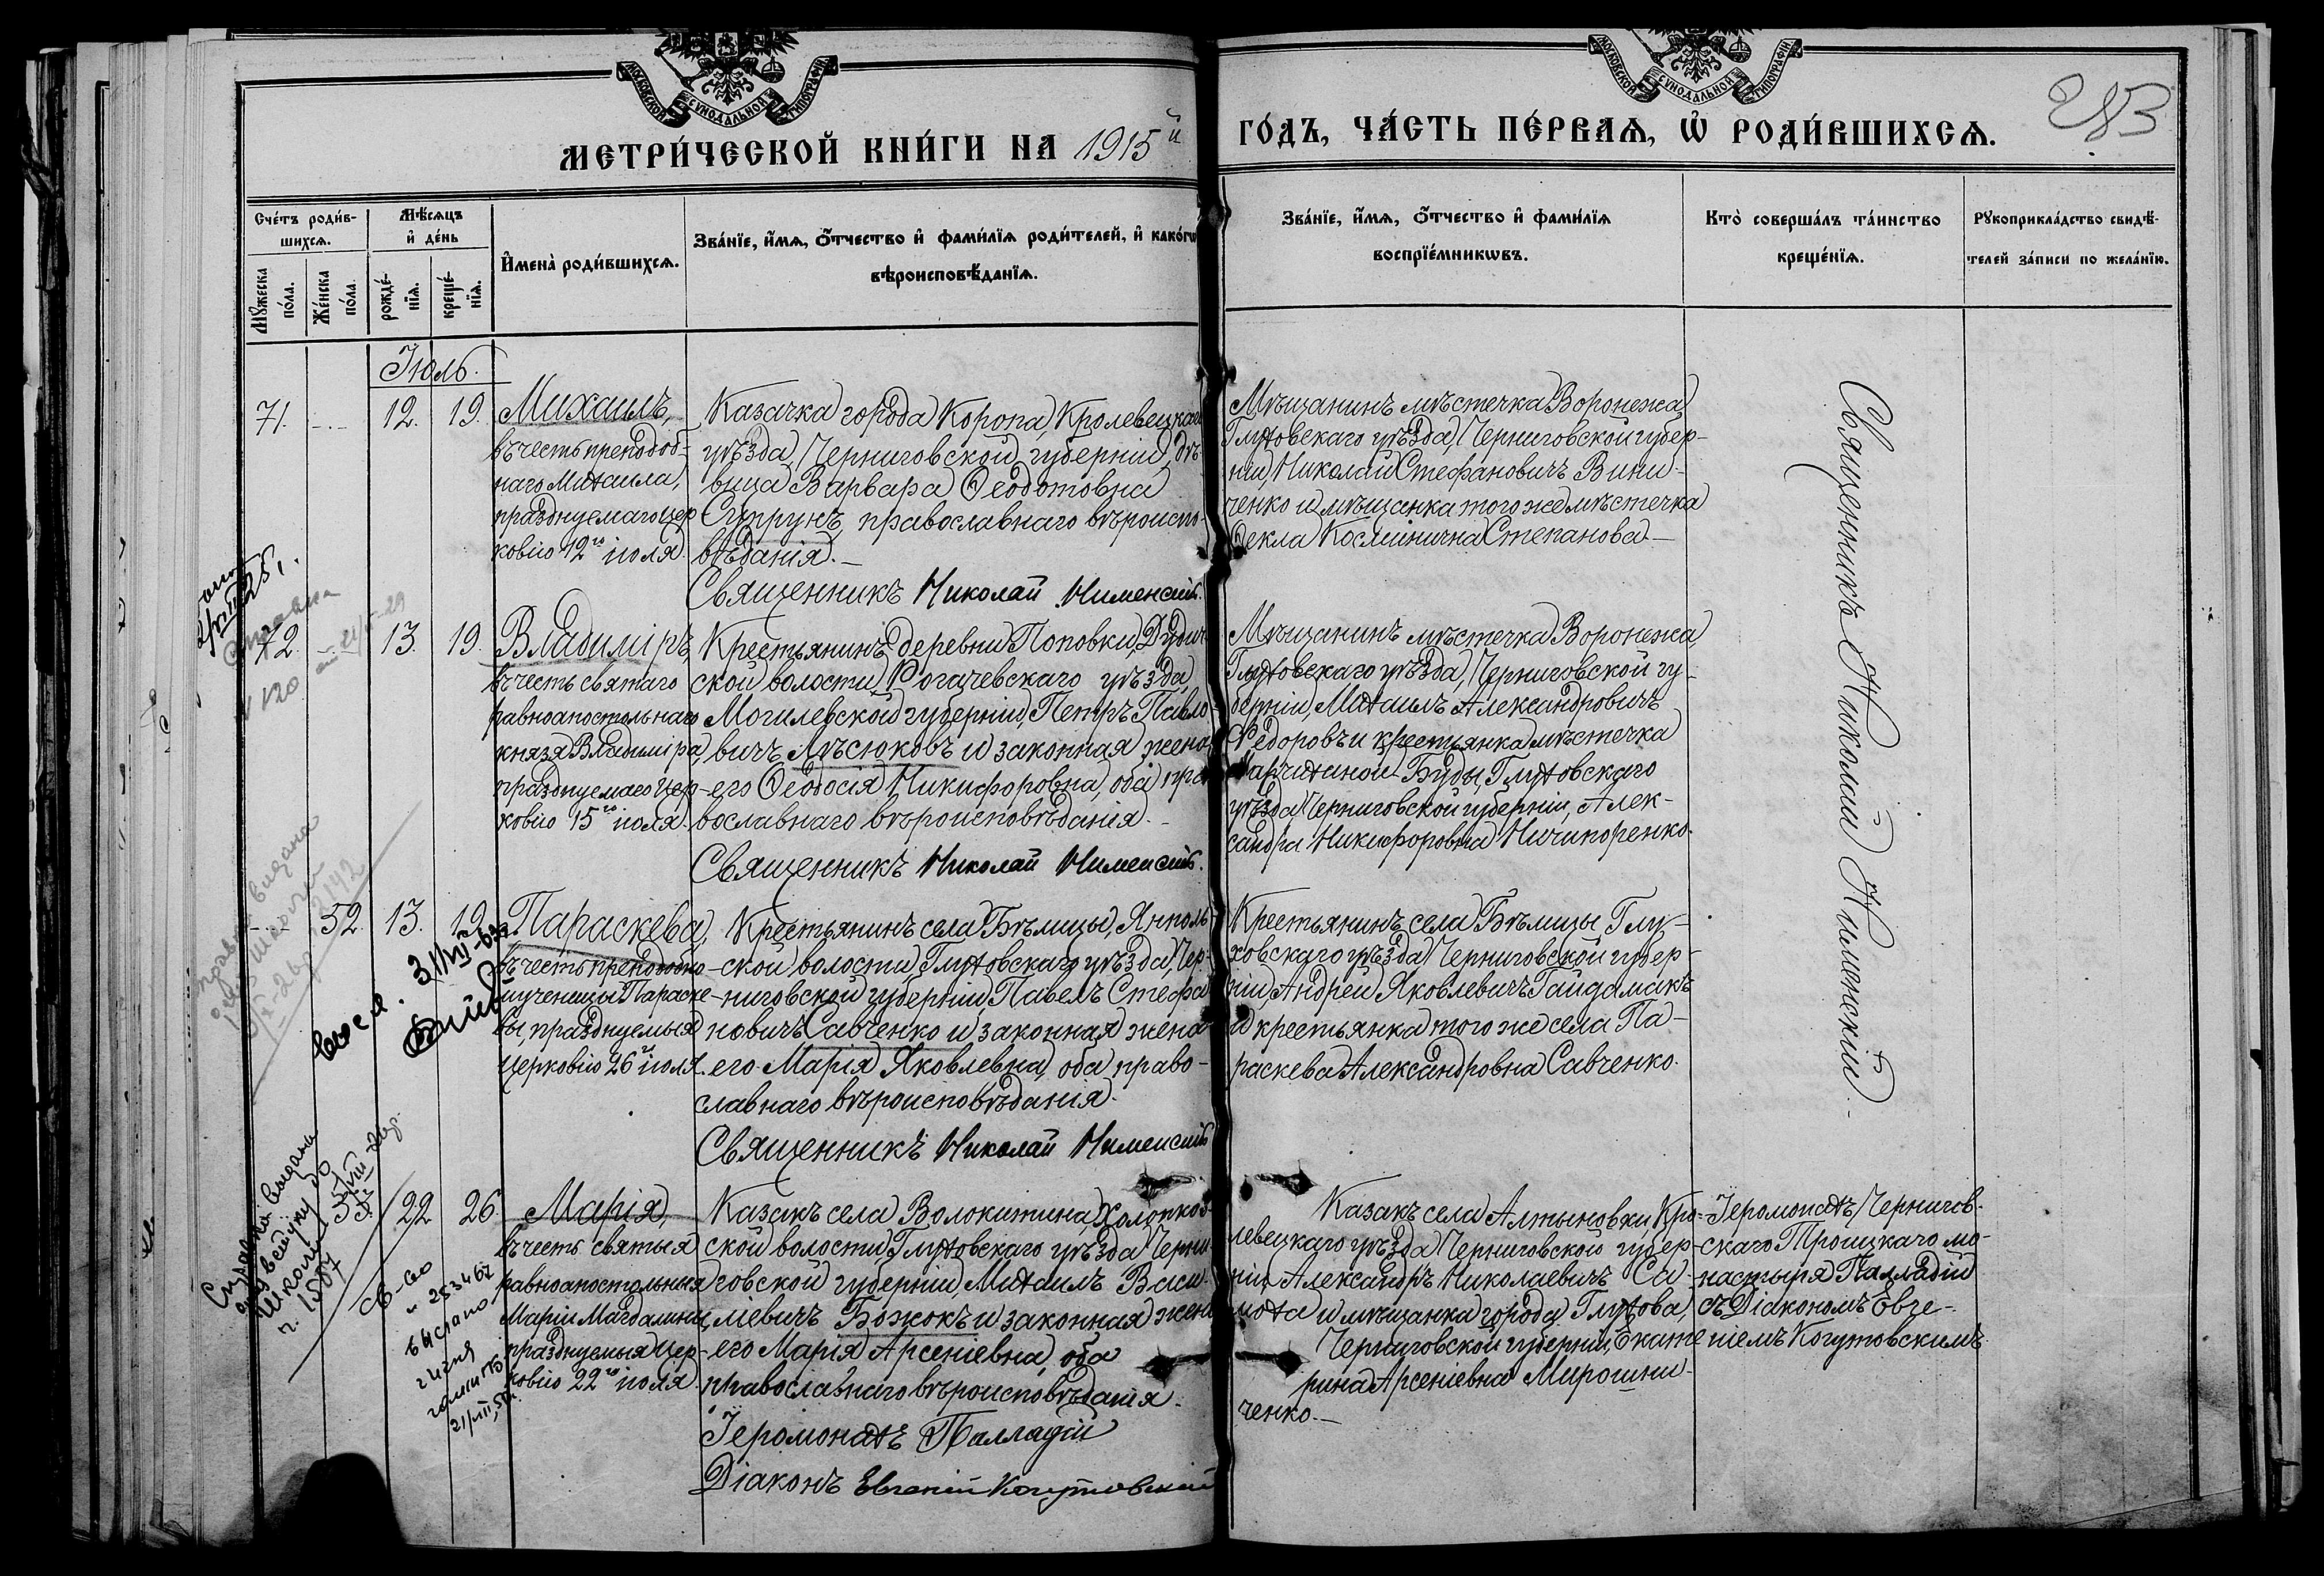 МОСКОВСКОЙ СѴНОДАЛЬНОЙ ТИПОГРАФІИ
МОСКОВСКОЙ СѴНОДАЛЬНОЙ ТИПОГРАФІИ
МЕТРИ́ЧЕСКОЙ КНИ́ГИ НА 1915й
ГО́ДЪ, ЧА́СТЬ ПЕ́РВАѦ, Ѡ҆ РОДИ́ВШИХСѦ.
Сче́тъ роди́в-
шихсѧ.
Мꙋ́жеска
по́ла.
Же́нска
по́ла.
Мѣ́сѧцъ
и҆ де́нь
рожде́-
нїѧ.
креще́-
нїѧ.
И҆мена̀ роди́вшихсѧ.
Зва́нїе, и҆́мѧ, ѻ҆́тчество и҆ фами́лїѧ роди́телей, и҆ како́гѡ
вѣроисповѣ́данїѧ.
Зва́нїе, и҆́мѧ, ѻ҆́тчество и҆ фами́лїѧ
воспрїе́мникѡвъ.
Кто̀ соверша́лъ та́инство
креще́нїѧ.
Рꙋкоприкла́дство свидѣ́-
телей за́писи по жела́нїю.
Іюль.
71. 12. 19.
Михаилъ,
въ честь преподоб-
наго Михаила,
празднуемаго цер-
ковію 12го іюля.
Казачка города Коропа, Кролевецкаго
уѣзда, Черниговской губерніи, дѣ-
вица Варвара Ѳеодотовна
Супрунъ, православнаго вѣроиспо-
вѣданія.—
Священникъ Николай Нименскій.
Мѣщанинъ мѣстечка Воронежа,
Глуховскаго уѣзда, Черниговской губер-
ніи, Николай Стефановичъ Вини-
ченко и мѣщанка того же мѣстечка
Ѳекла Косминична Степанова.—
Священникъ Николай Нименскій.
72. 13. 19.
Владиміръ,
въ честь святаго
равноапостольнаго
князя Владиміра,
празднуемаго цер-
ковію 15го іюля.
Крестьянинъ деревни Поповки, Дудич-
ской волости, Рогачевскаго уѣзда,
Могилевской губерніи, Петръ Павло-
вичъ Мѣсюковъ и законная жена
его Ѳеодосія Никифоровна, оба пра-
вославнаго вѣроисповѣданія.
Священникъ Николай Нименскій.
Мѣщанинъ мѣстечка Воронежа,
Глуховскаго уѣзда, Черниговской гу-
берніи, Михаилъ Александровичъ
Ѳедоровъ и крестьянка мѣстечка
Марчихиной-Буды, Глуховскаго
уѣзда, Черниговской губерніи, Алек-
сандра Никифоровна Ничипоренко.
52. 13. 19.
Параскева,
въ честь преподобно-
мученицы Параске-
вы, празднуемыя
церковію 26го іюля.
Крестьянинъ села Бѣлицы, Янполь-
ской волости, Глуховскаго уѣзда, Чер-
ниговской губерніи, Павелъ Стефа-
новичъ Савченко и законная жена
его Марія Яковлевна, оба право-
славнаго вѣроисповѣданія.
Священникъ Николай Нименскій
Крестьянинъ села Бѣлицы Глу-
ховскаго уѣзда Черниговской губер-
ніи, Андрей Яковлевичъ Гайдамакъ
и крестьянка того же села Па-
раскева Александровна Савченко.
53. 22 26
Марія,
въ честь святыя
равноапостольныя
Маріи Магдалины,
празднуемыя цер-
ковію 22го іюля.
Казакъ села Волокитина, Холопков-
ской волости, Глуховскаго уѣзда, Черни-
говской губерніи, Михаилъ Васи-
льевичъ Божокъ и законная жена
его Марія Арсеніевна, оба
православнаго вѣроисповѣданія.
Іеромонахъ Палладій
Діаконъ Евгеній Когутовскій
Казакъ села Алтыновки, Кро-
левецкаго уѣзда Черниговской губер-
ніи, Александръ Николаевичъ Са-
моха и мѣщанка города Глухова,
Черниговской губерніи, Екате-
рина Арсеніевна Мирошни-
ченко.—
Іеромонахъ Чернигов-
скаго Троицкаго мо-
настыря Палладій
съ Діакономъ Евге-
ніемъ Когутовскимъ.
Справка выдана
Школи
ч. 1587
св-во
253467
выслано
21/VIII,50.